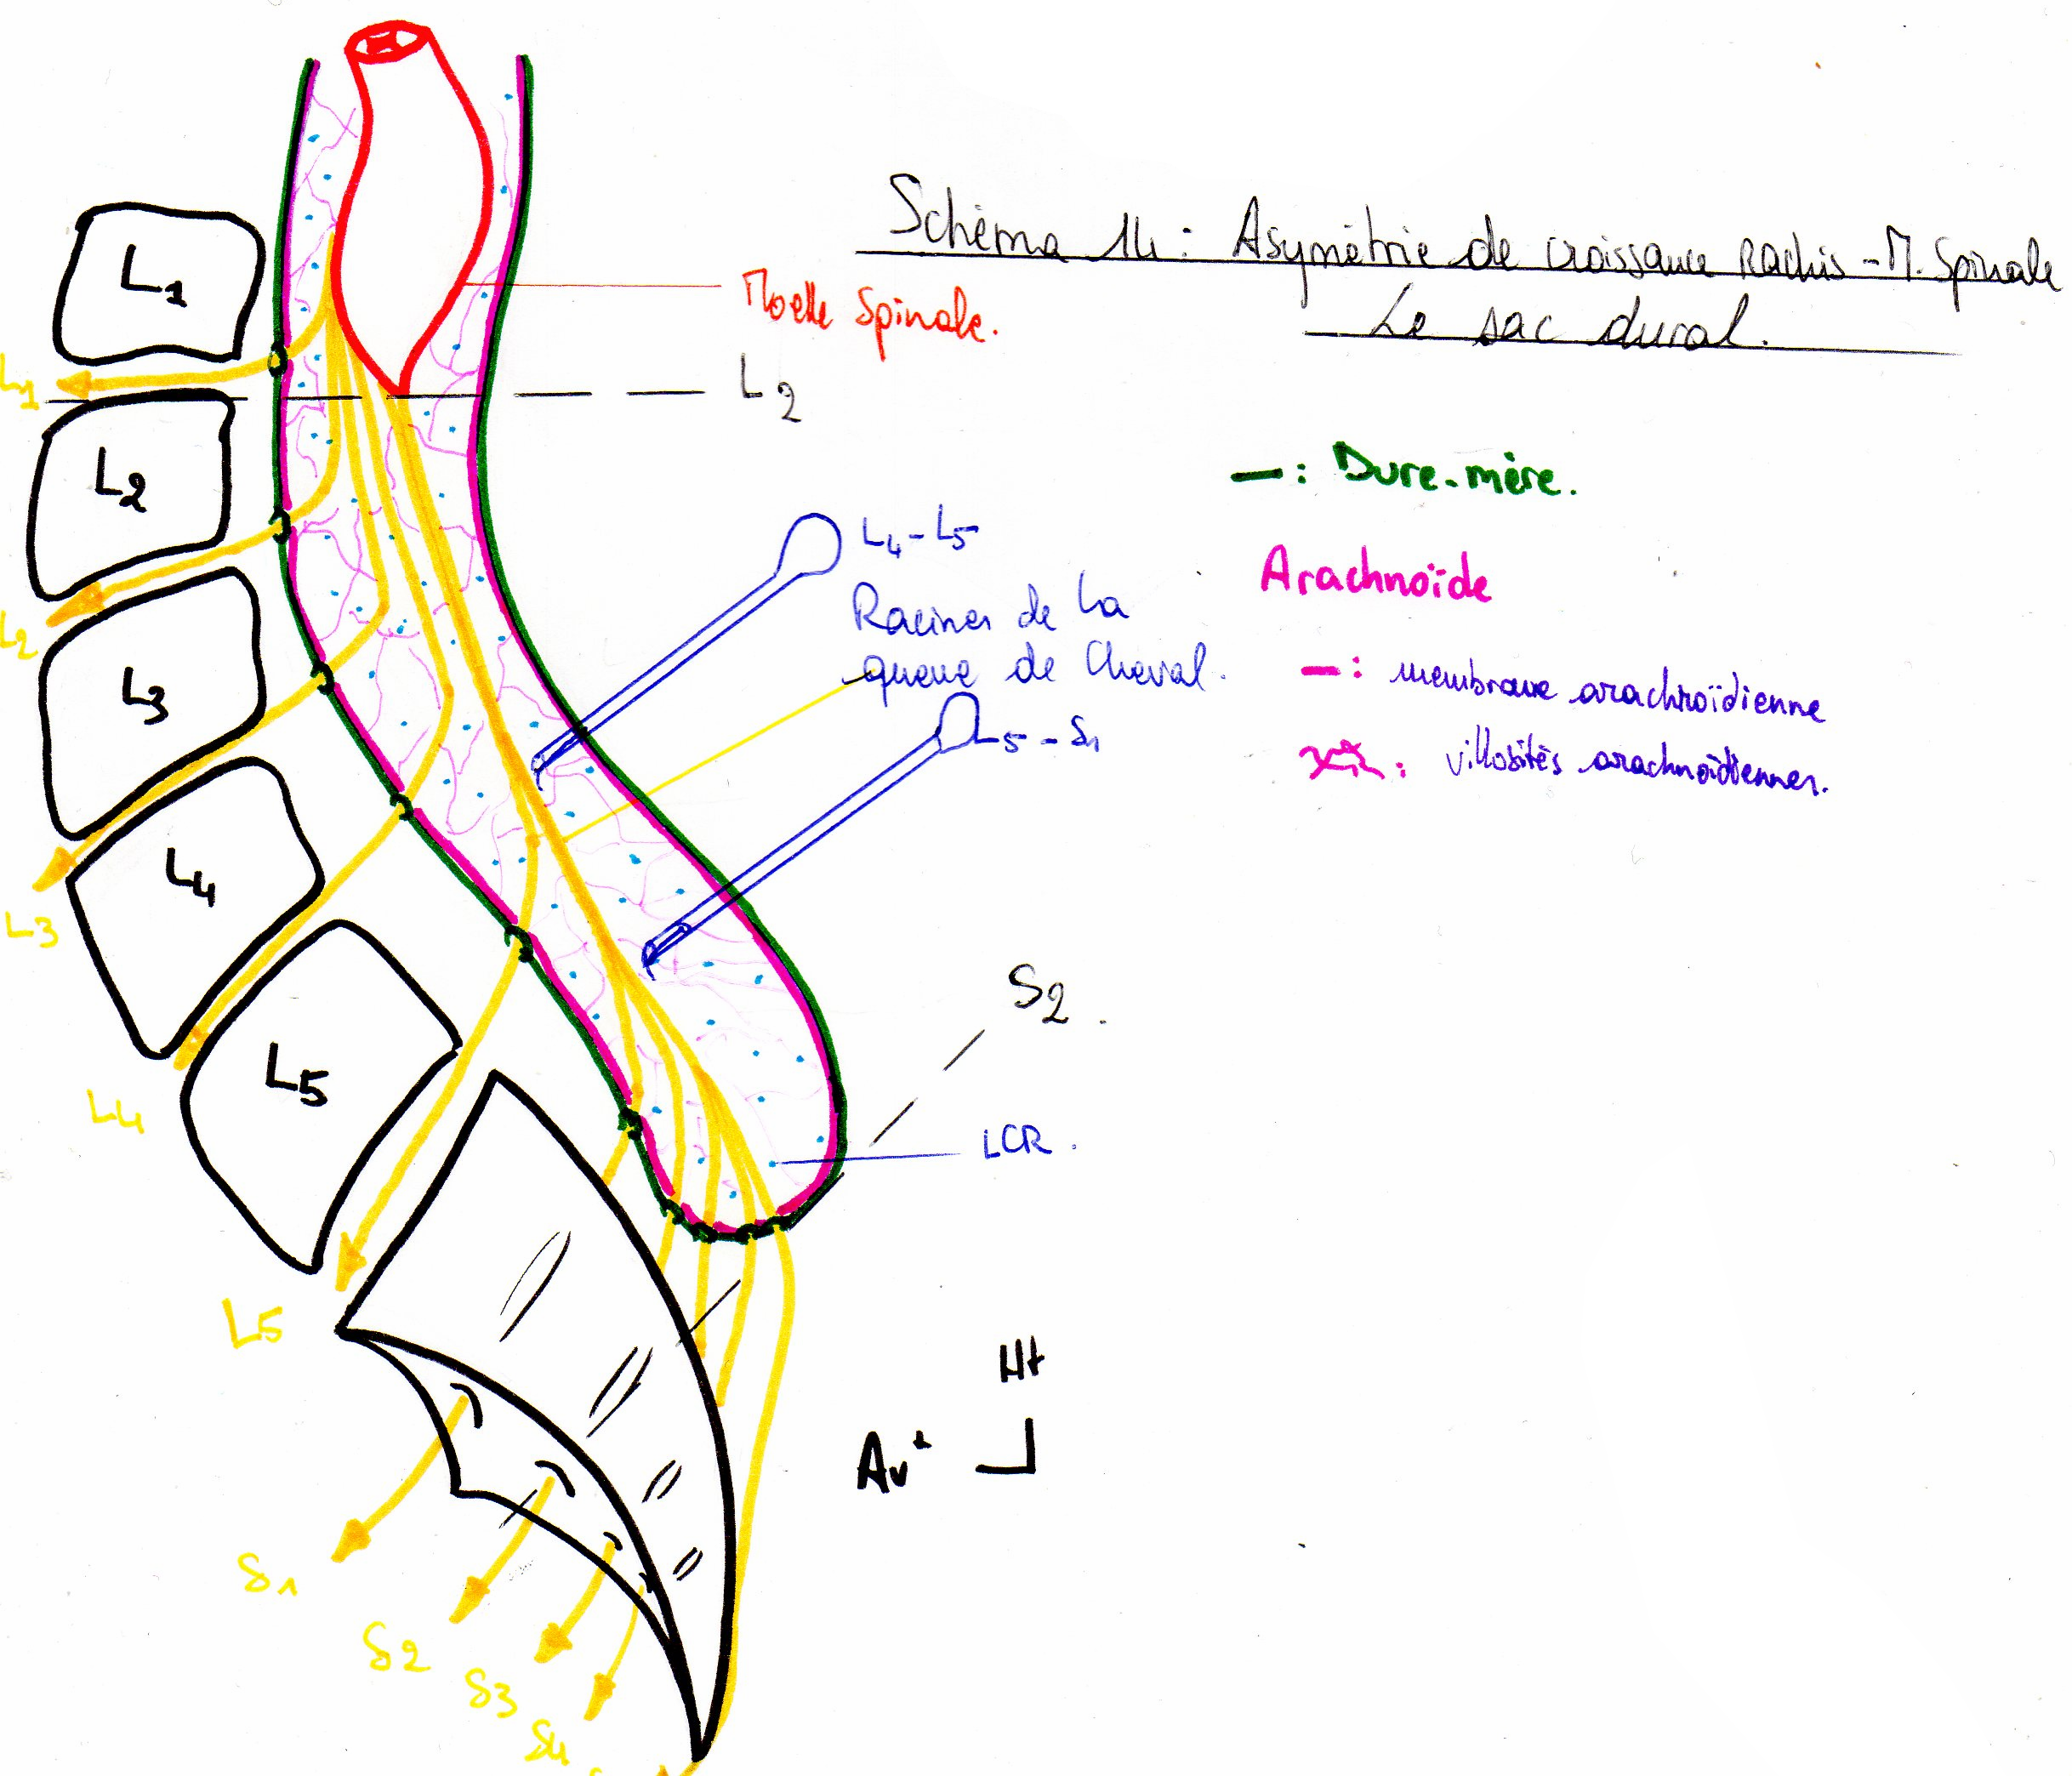 Schéma 14 : Asymétrie de croissance Rachis - M. Spinale
Le sac dural.
L1
Moelle Spinale.
L1
L2
L2
— : Dure-mère.
L4 - L5
Racines de la
queue de Cheval.
Arachnoïde
— : membrane arachnoïdienne
: villosités arachnoïdiennes.
L2
L3
L5 - S1
L4
L3
S2.
L5
L4
LCR.
L5
Ht
Avt
S1
S2
S3
S4